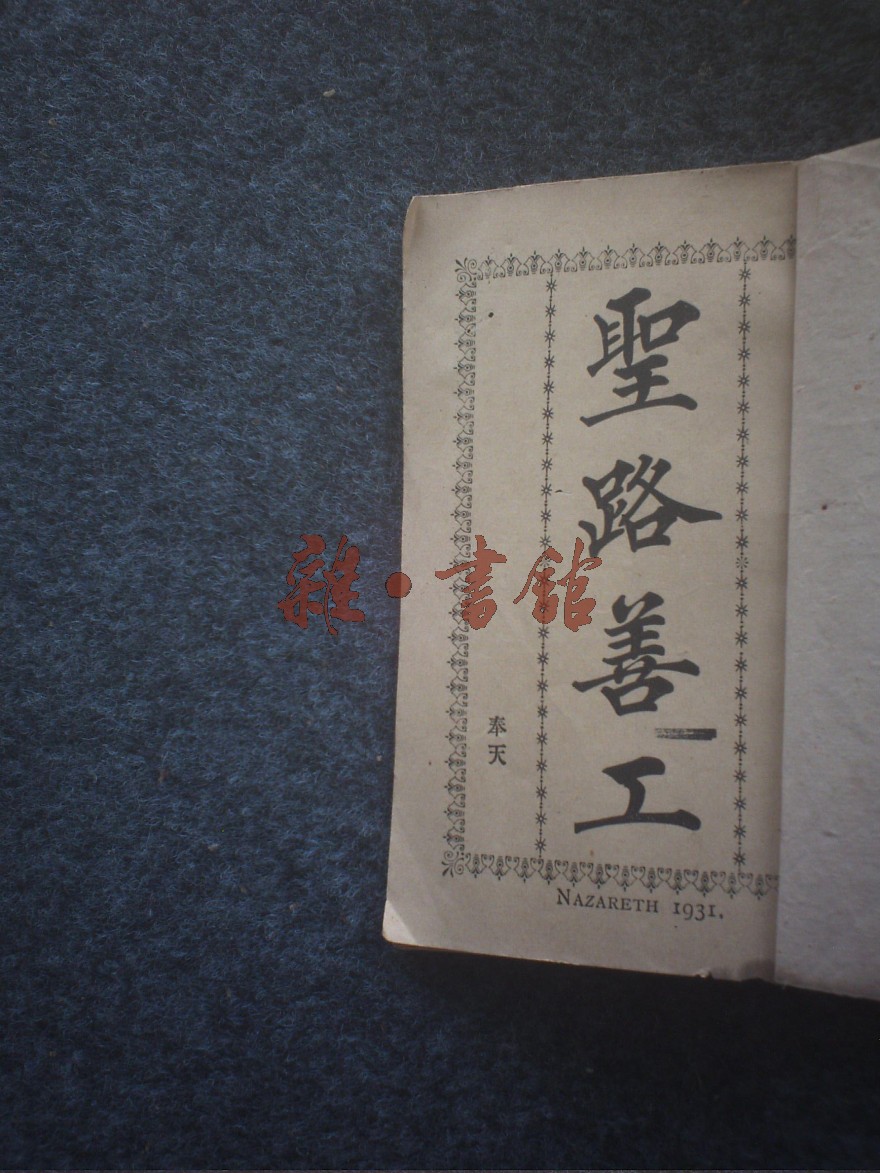 聖路善工
奉天
NAZARETH 1931.
雜·書館